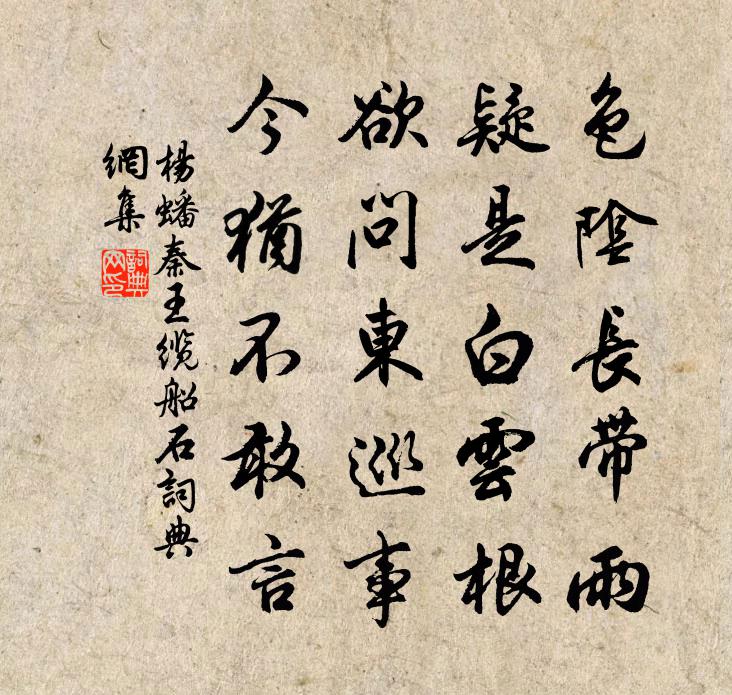 色陰長帶雨
疑是白雲根
欲問東巡事
今猶不敢言
楊蟠秦王纜船石詞典
網集
詞典
网印